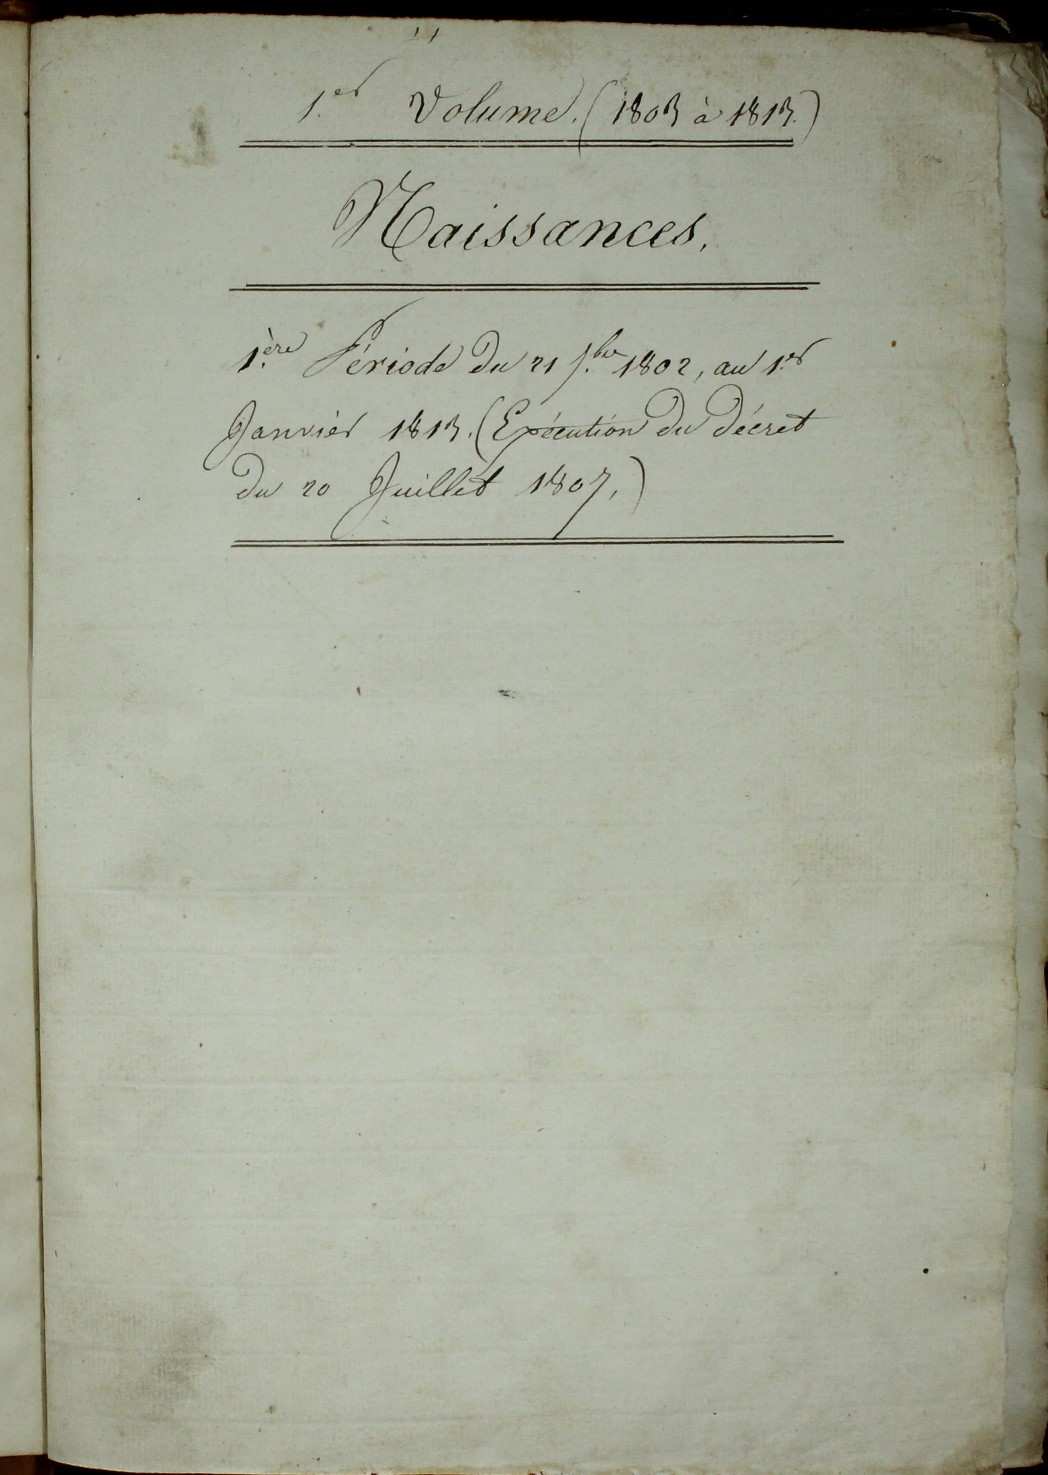 1.er Volume. (1803 à 1813.)
Naissances.
1.ère Période du 21 7.bre 1802, au 1.er
Janvier 1813. (Exécution du décret
du 20 Juillet 1807.)